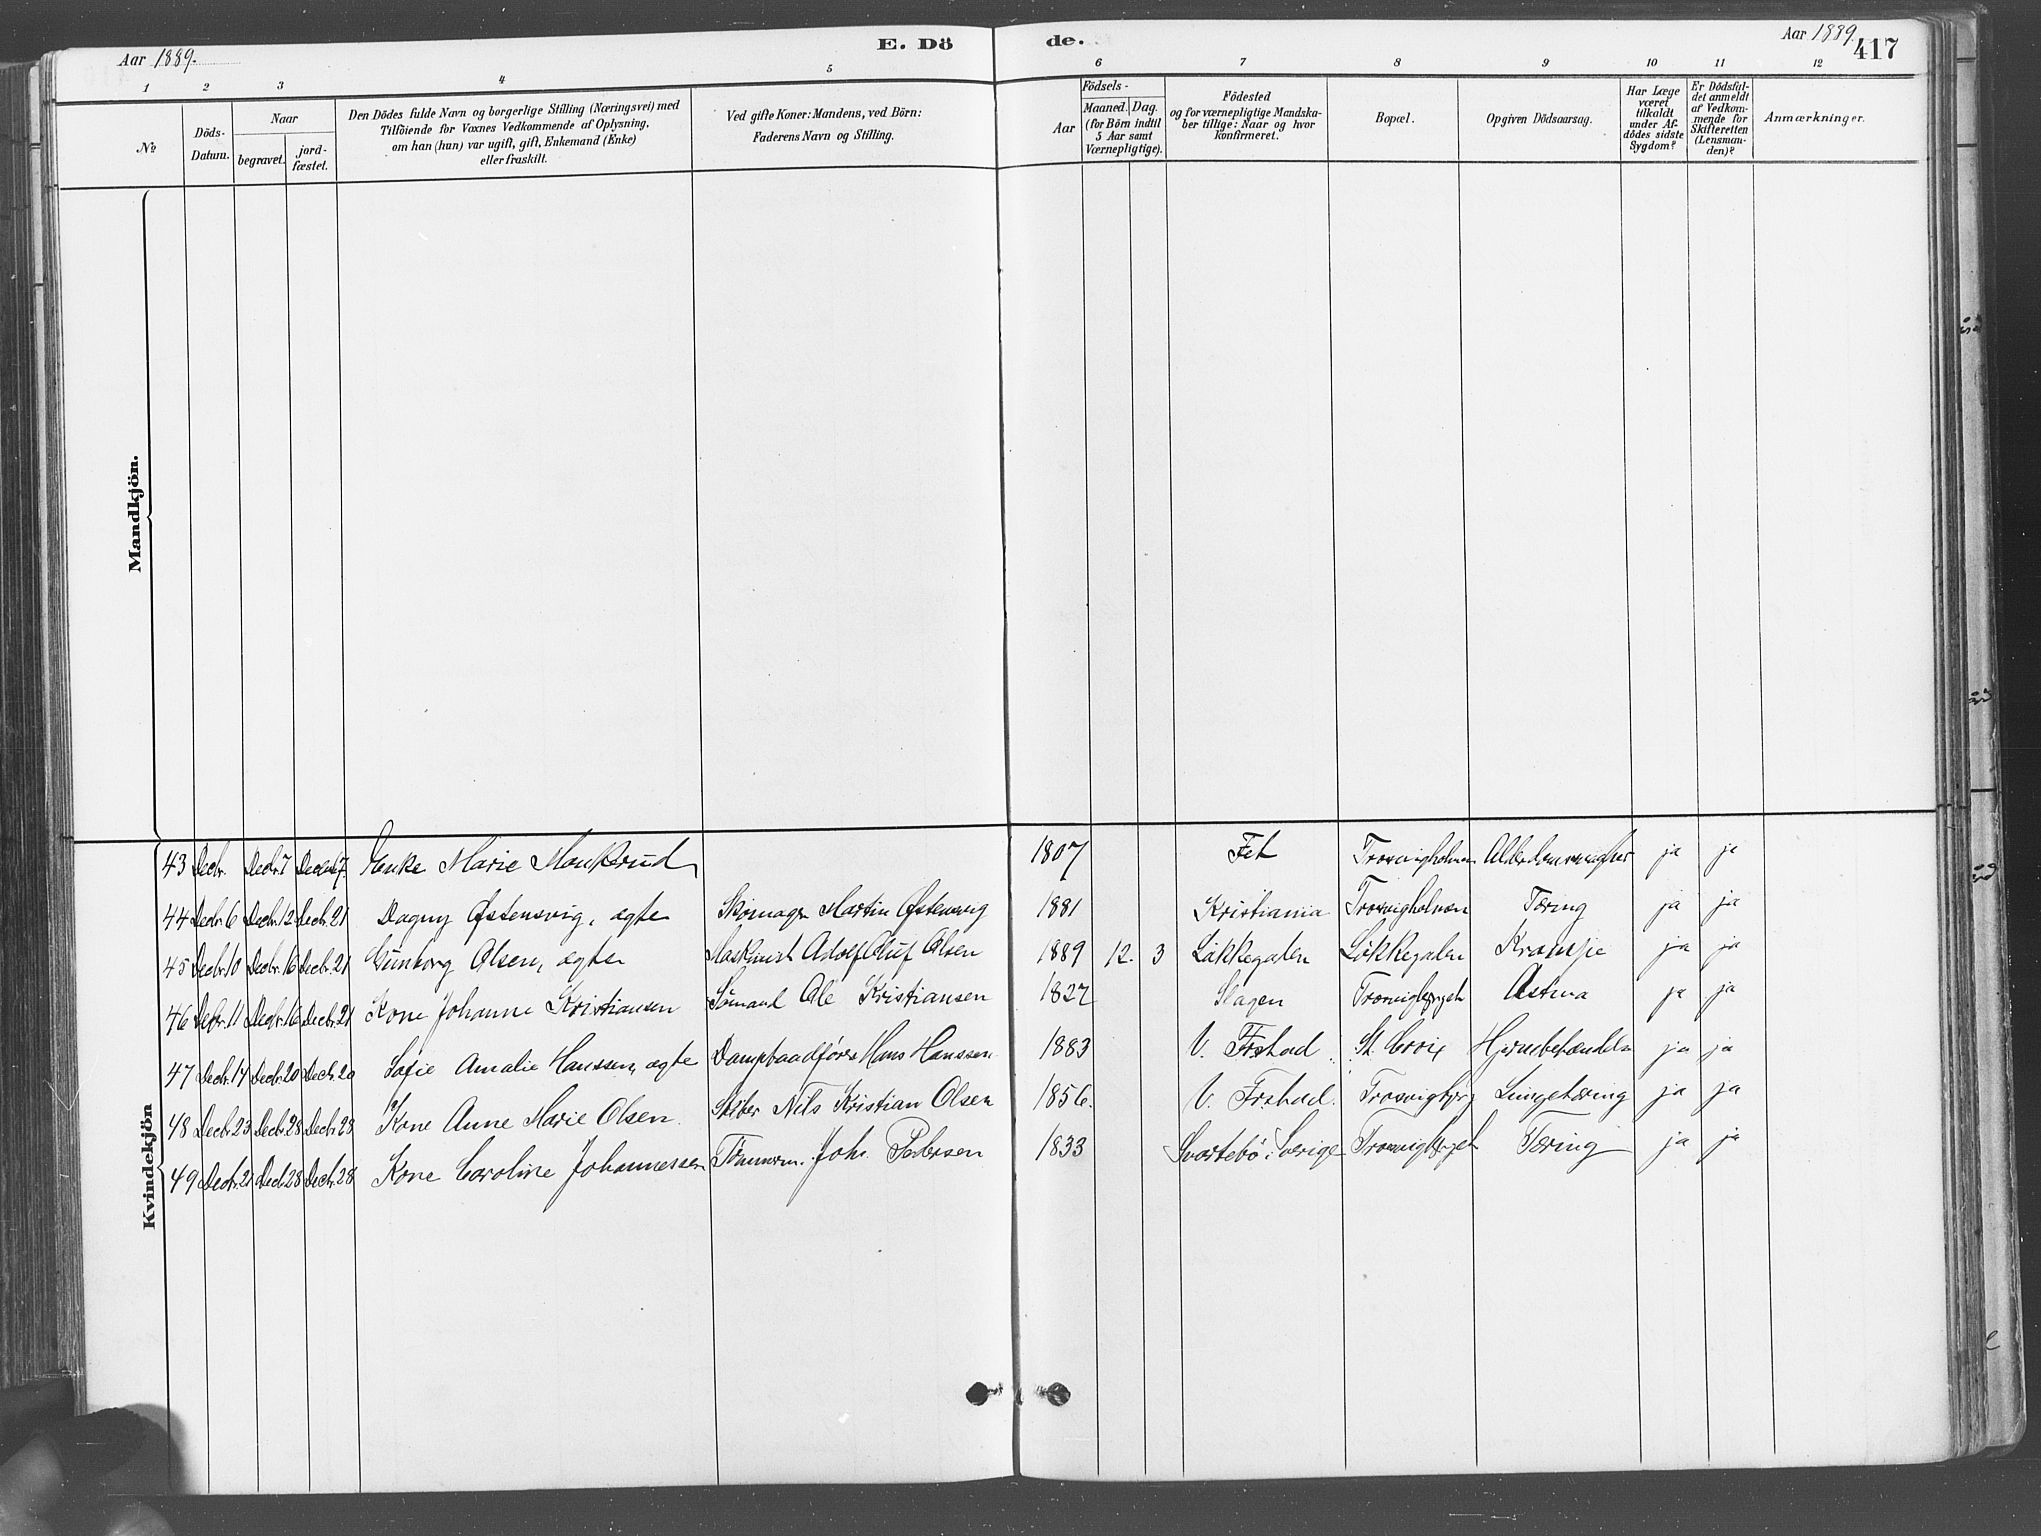 Aar 1889.
E. Dö de.
Aar 1889.
417
1 2 3 4 5 6 7 8 9 10 11 12
No
Döds-Datum.
Naar
begravet.
jord-fæstet.
Den Dödes fulde Navn og borgerlige Stilling (Næringsvei) med
Tilföiende for Voxnes Vedkommende af Oplysning,
om han (hun) var ugift, gift, Enkemand (Enke)
eller fraskilt.
Ved gifte Koner: Mandens, ved Börn:
Faderens Navn og Stilling.
Födsels-
Aar
Maaned. Dag.
(for Börn indtil
5 Aar samt
Værnepligtige).
Födested
og for værnepligtige Mandska-
ber tillige: Naar og hvor
konfirmeret.
Bopæl.
Opgiven Dödsaarsag.
Har Læge
været
tilkaldt
under Af-
dödes sidste
Sygdom?
Er Dödsfal-
det anmeldt
af Vedkom-
mende for
Skifteretten
(Lensman-
den)?
Anmærkninger.
Mandkjön.
Kvindekjön
43 Decbr. Decbr. 7 Enke Marie 1807 Fet Trosvigholmen ja ja
44 Decbr. 6 Decbr. 12 Decbr. 21 Dagny Østensvig, ægte Skomager Martin Østensvig 1881 Kristiania Trosvigholmen Tæring ja ja
45 Decbr. 10 Decbr. 16 Decbr. 21 Gunborg Olsen, ægte Maskinist Adolf Oluf Olsen 1889 12. 3 Løkkegaden Løkkegaden Krampe ja ja
46 Decbr. 11 Decbr. 16 Decbr. 21 Kone Johanne Kristiansen Sömand Ole Kristiansen 1827 Slagen Trosvigberget Astma ja ja
47 Decbr. 14 Decbr. 20 Decbr. 20 Sofie Amalie Hanssen, ægte Dampbaadförer Hans Hanssen 1883 V. Frstad. St. Croix ja ja
48 Decbr. 23 Decbr. 28 Decbr. 28 Kone Anne Marie Olsen. Nils Kristian Olsen 1856. V. Frstad. Trosvigbrg Lungetæring ja ja
49 Decbr. 21 Decbr. 28 Decbr. 28 Kone Caroline Johannessen Tömmerm. Joh. Pedersen 1833 Svartebö i Sverige Trosvigberget Tæring ja ja